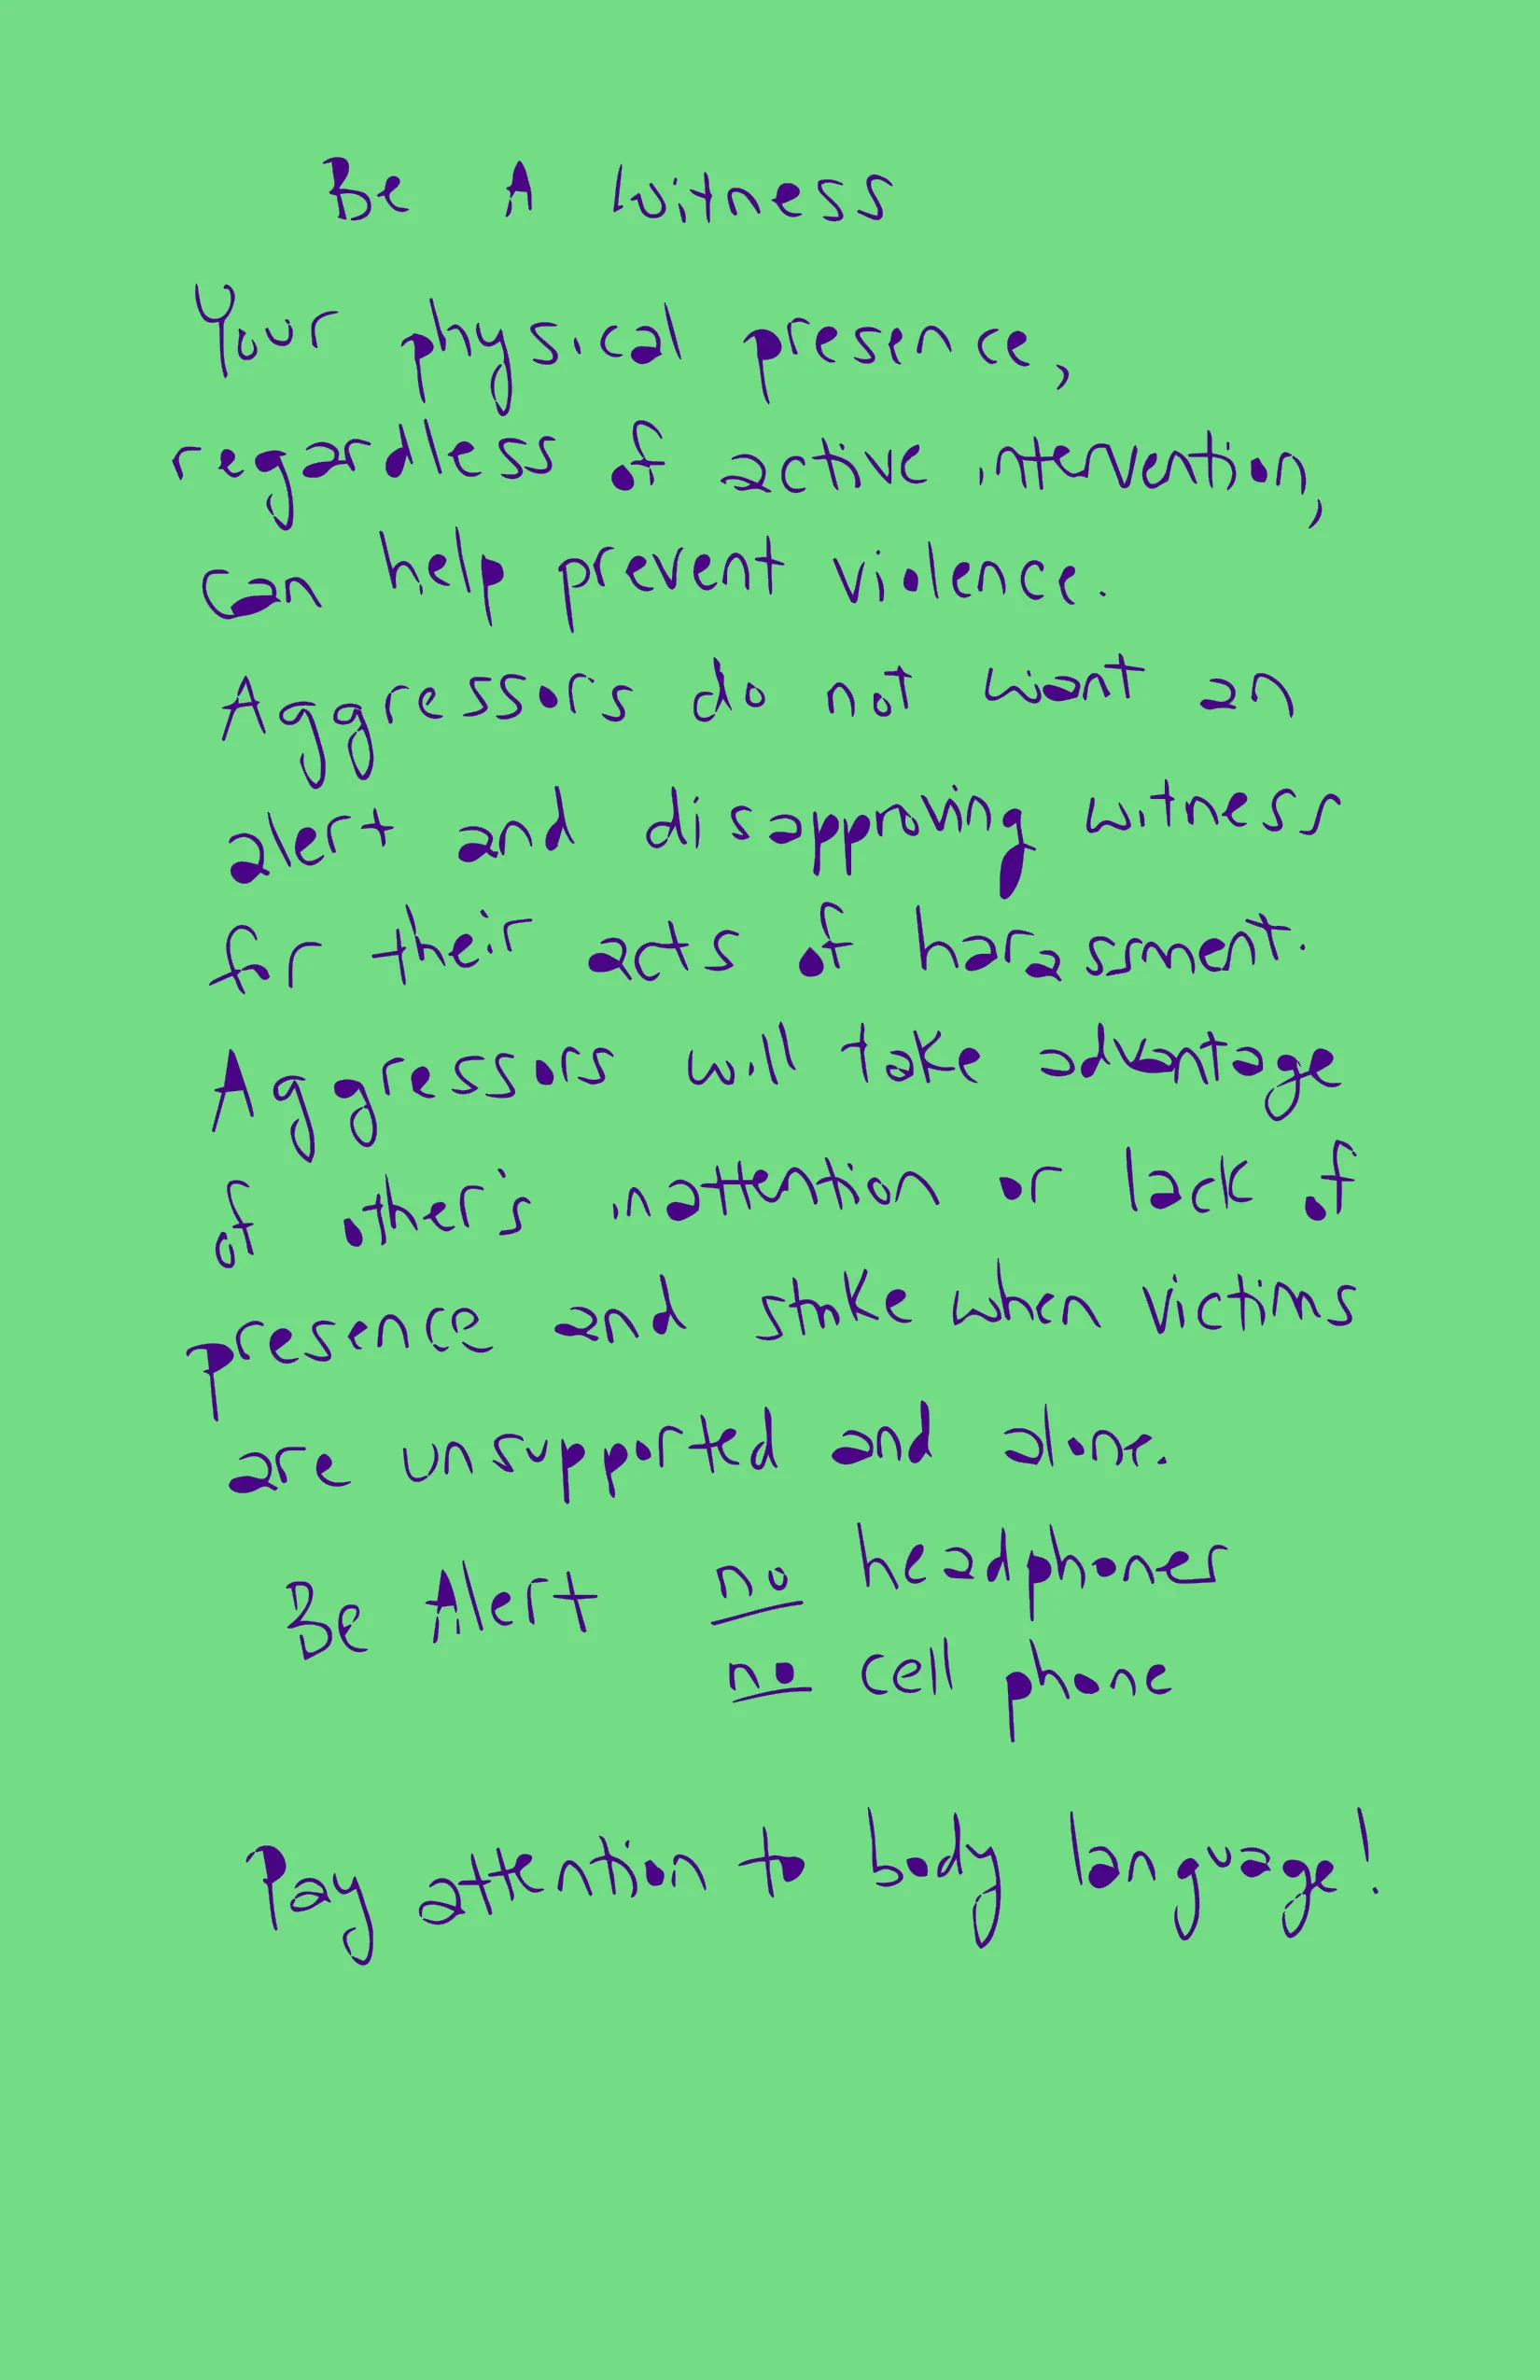 Be A Witness
Your physical presence,
regardless of active intervention,
can help prevent violence.
Aggressors do not want an
alert and disapproving witness
for their acts of harassment.
Aggressors will take advantage
of other's inattention or lack of
presence and strike when victims
are unsupported and alone.
Be Alert no headphones
no cell phone
Pay attention to body language!